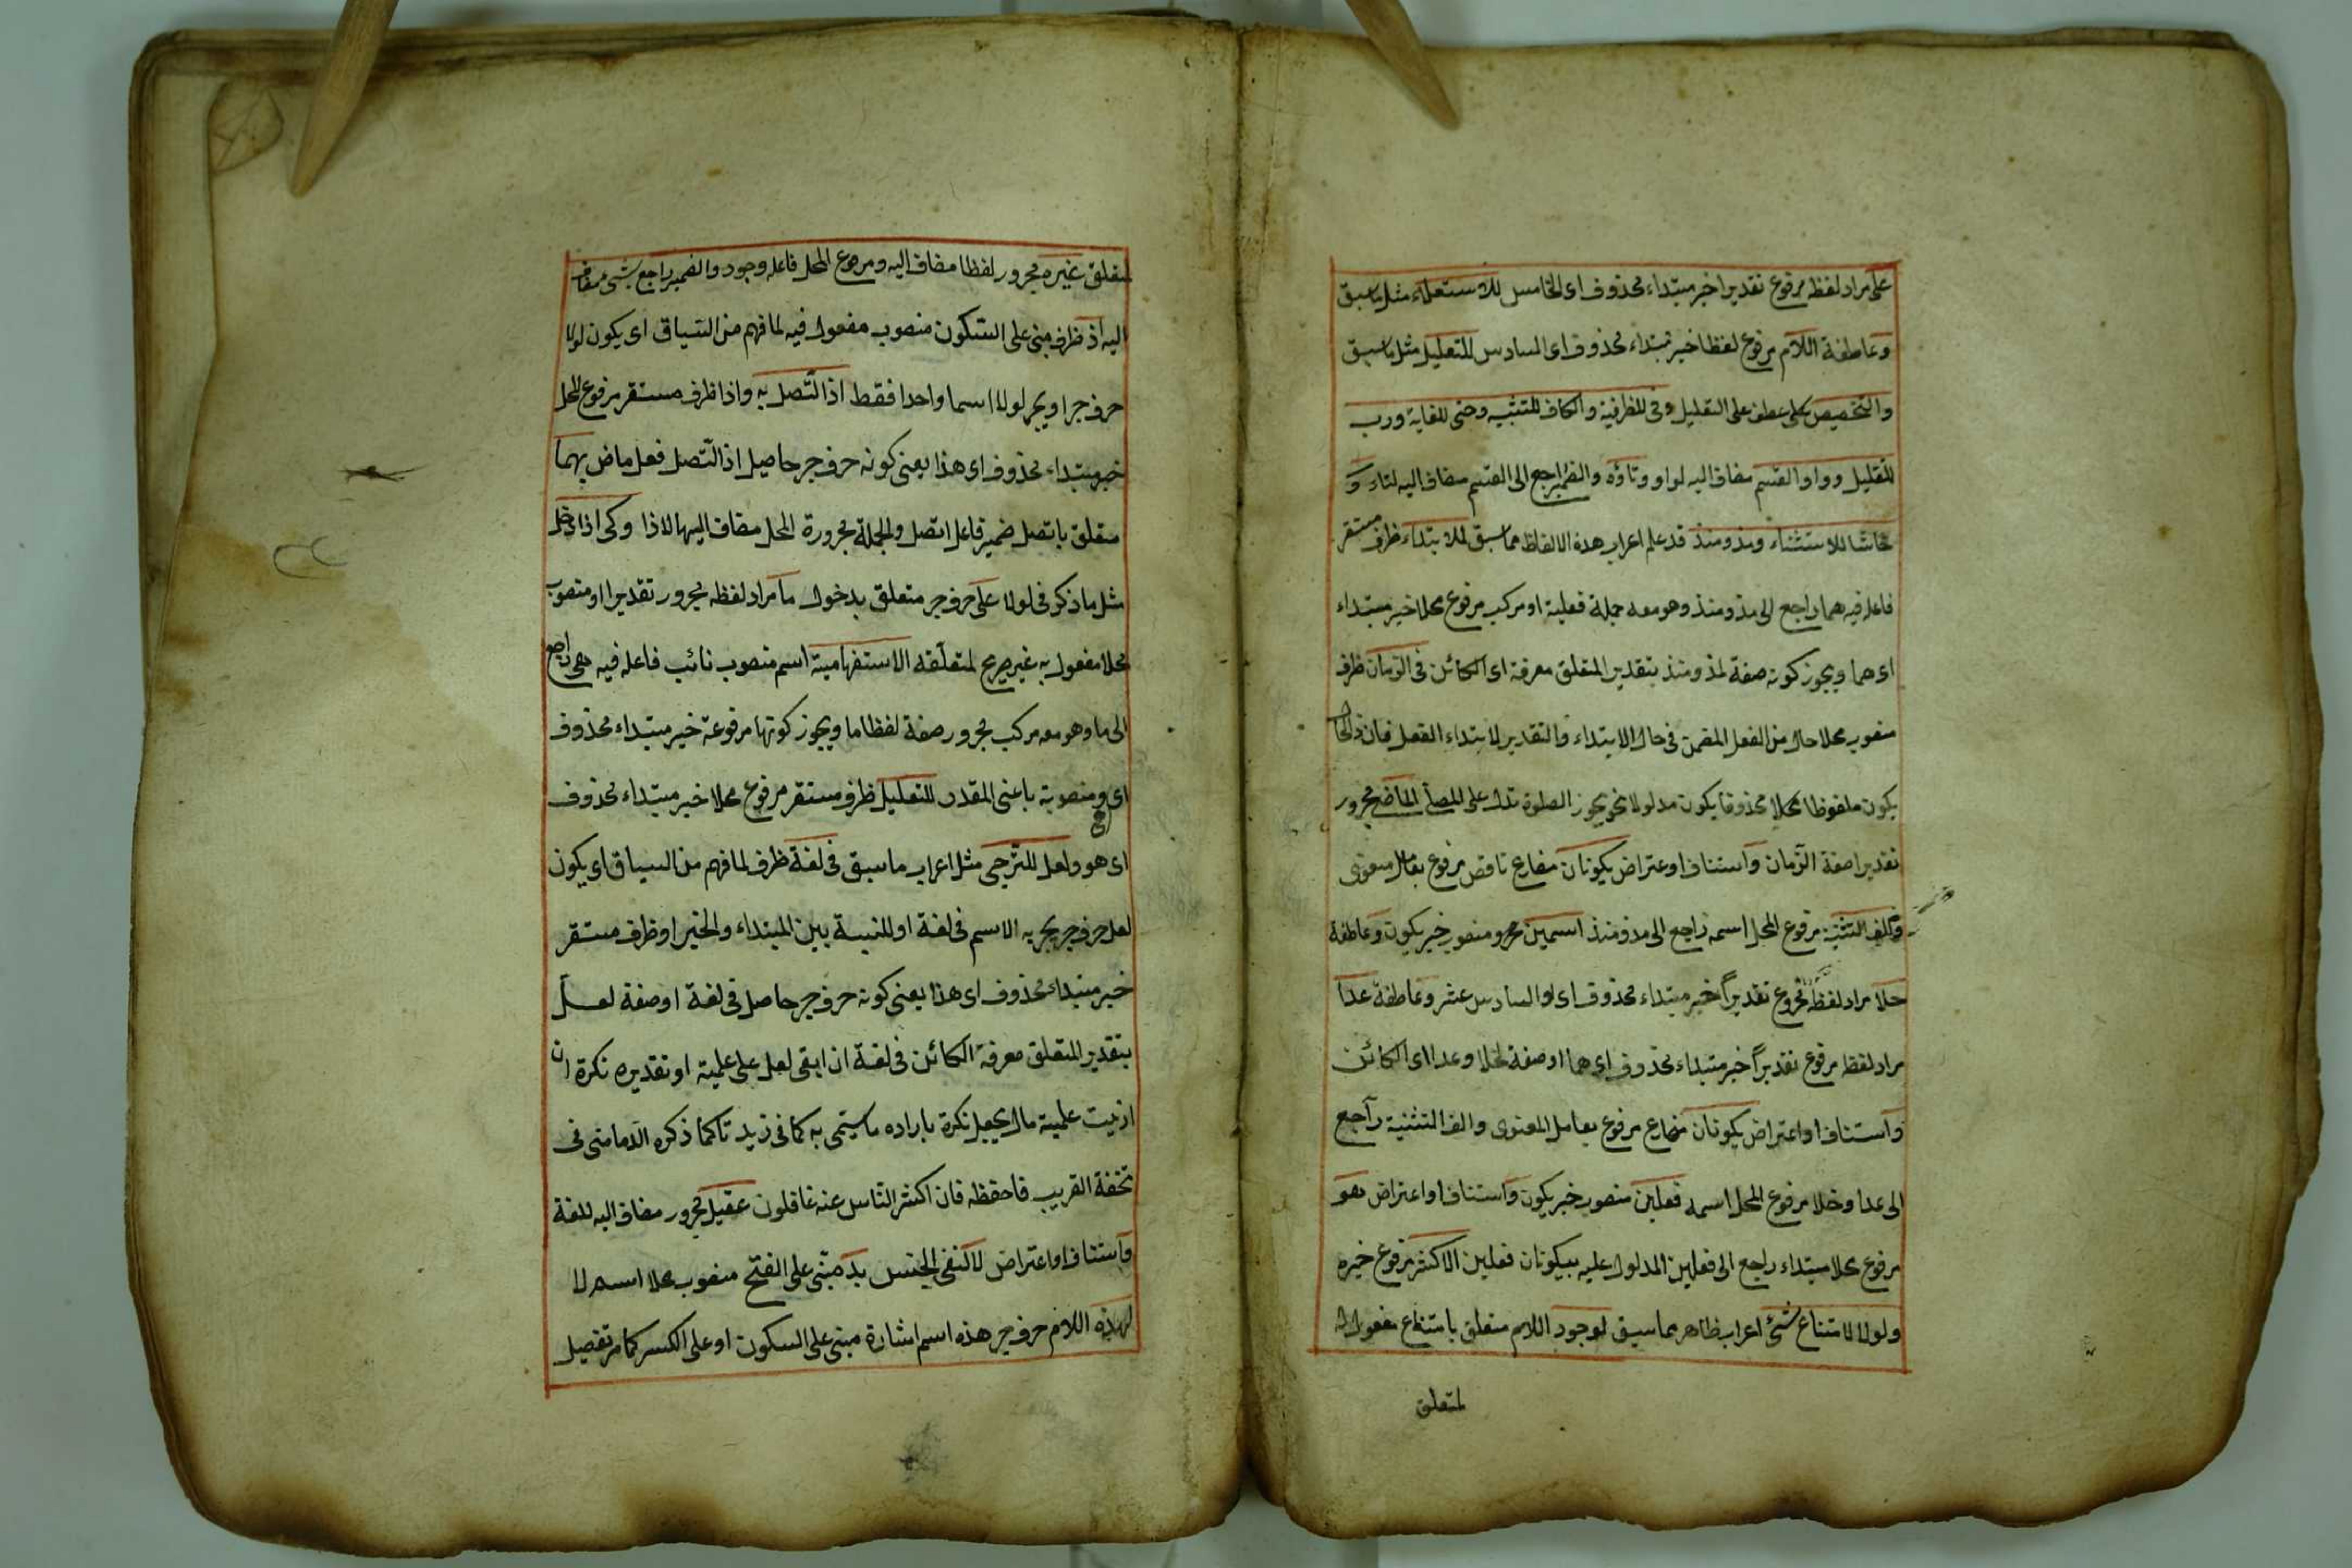 على مراد لفظه مرفوع تقديرا خبر مبتداء محذوف اى الخامس للاستعلاء مثل ما سبق
وعاطفة اللام مرفوع لفظا خبر مبتداء محذوف اى السادس للتعليل مثل ما سبق
والتخصيص عطف على التعليل وفى للظرفية والكاف للتشبيه وحتى للغاية ورب
للتقليل وواو القسم مضاف اليه لواو وتاؤه والضمير راجع الى القسم مضاف اليه لتاء و
حاشا للاستثناء ومذ ومنذ قد علم اعراب هذه الالفاظ مما سبق للابتداء ظرف مستقر
فاعله فيه هما راجع الى مذ ومنذ وهو معه جملة فعلية او مركب مرفوع محلا خبر مبتداء
اى هما ويجوز كونه صفة لمذ ومنذ بتقدير المتعلق معرفة اى الكائن فى الزمان ظرف
منصوب محلا حال من الفعل المضمن فى حال الابتداء والتقدير لابتداء الفعل فان ذا الحال
يكون ملفوظا محذوفا يكون مدلولا نحو يجوز الصلوة تدل على المصلى الماضى مجرور
تقديرا صفة الزمان واستئناف او اعتراض يكونان مضارع ناقص مرفوع بعامل معنوى
والف التثنية مرفوع المحل اسمه راجع الى مذ ومنذ اسمين منصوب خبر يكون وعاطفة
خلا مراد لفظه مرفوع تقديراً خبر مبتداء محذوف اى السادس عشر وعاطفة عدا
مراد لفظه مرفوع تقديراً خبر مبتداء محذوف اى هما او صفة لخلا وعدا اى الكائن
واستئناف او اعتراض يكونان مضارع مرفوع بعامل المعنوى والف التثنية راجع
الى عدا وخلا مرفوع المحل اسمه فعلين منصوب خبر يكون واستئناف او اعتراض هو
مرفوع محلا مبتداء راجع الى فعلين المدلول عليه بيكونان فعلين الاكثر مرفوع خبره
ولولا لامتناع شئ اعراب ظاهر مما سبق لوجود اللام متعلق بامتناع مفعول له
لمتعلق
لمتعلق غيره مجرور لفظا مضاف اليه ومرفوع المحل فاعله وجود والضمير راجع شئ مضاف
اليه اذ ظرف مبنى على السكون منصوب مفعول فيه لما فهم من السياق اى يكون لولا
حرف جر او يجر لولا اسما واحدا فقط اذا اتصل به واذا ظرف مستقر مرفوع المحل
خبر مبتداء محذوف اى هذا يعنى كونه حرف جر حاصل اذا اتصل فعل ماض بهما
متعلق باتصل ضمير فاعل اتصل والجملة مجرورة المحل مضاف اليها لاذا وكى اذا دخل
مثل ما ذكر فى لولا على حرف جر متعلق بدخول ما مراد لفظه مجرور تقديرا او منصوب
محلا مفعول به غير صريح لمتعلقه الاستفهامية اسم منصوب نائب فاعله فيه هى راجع
الى ما وهو معه مركب مجرور صفة لفظا ما ويجوز كونها مرفوعة خبر مبتداء محذوف
اى هو ومنصوبة باعنى المقدر للتعليل ظرف مستقر مرفوع محلا خبر مبتداء محذوف
اى هو ولعل للترجى مثل اعراب ما سبق فى لغة ظرف لما فهم من السياق اى يكون
لعل حرف جر يجر به الاسم فى لغة او للنسبة بين المبتداء والخبر او ظرف مستقر
خبر مبتداء محذوف اى هذا يعنى كونه حرف جر حاصل فى لغة او صفة لعل
بتقدير المتعلق معرفة الكائن فى لغة ان ابقى لعل على علمية او تقديره نكرة ان
ازيت علمية مال يجعل نكرة باراده ما سمى به كما فى زيد كما ذكره الدمامنى فى
تحفة القريب فاحفظه فان اكثر الناس عنه غافلون عقيل مجرور مضاف اليه للغة
واستئناف او اعتراض لا لنفى الجنس بد مبنى على الفتح منصوب محلا اسم لا
لهذه اللام حرف جر هذه اسم اشارة مبنى على السكون او على الكسر كما مر تفصيل